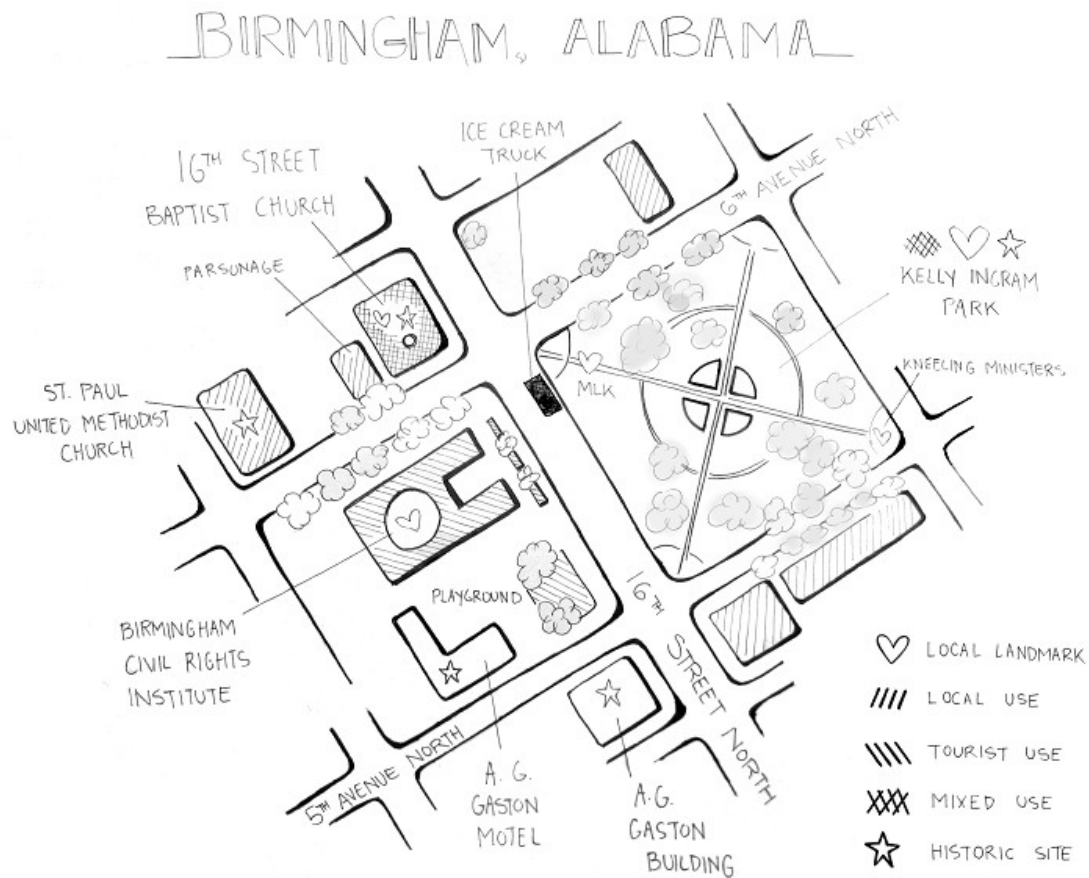 BIRMINGHAM, ALABAMA
ICE CREAM
TRUCK
16TH STREET
BAPTIST CHURCH
PARSONAGE
6TH AVENUE NORTH
KELLY INGRAM
PARK
KNEELING MINISTERS
MLK
ST. PAUL
UNITED METHODIST
CHURCH
PLAYGROUND
BIRMINGHAM
CIVIL RIGHTS
INSTITUTE
16TH STREET NORTH
5TH AVENUE NORTH
A. G.
GASTON
MOTEL
A.G.
GASTON
BUILDING
LOCAL LANDMARK
LOCAL USE
TOURIST USE
MIXED USE
HISTORIC SITE